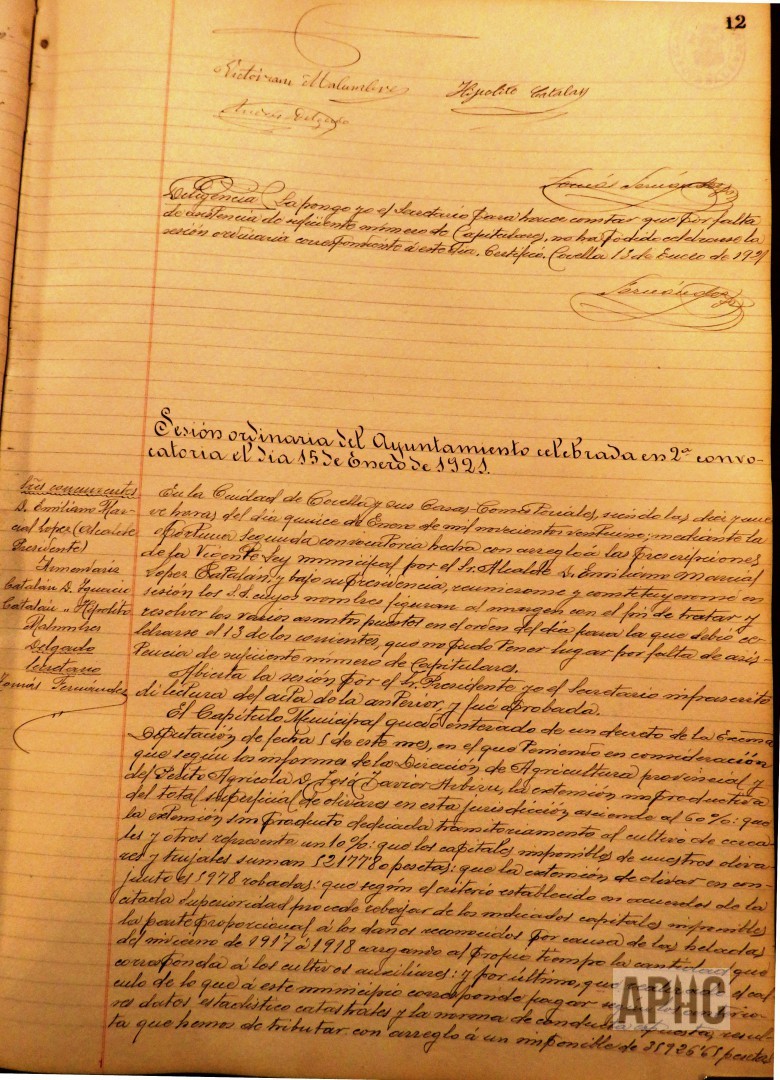 12
Victoriano Malumbres Hipolito Catalan
Andrés Delgado
Tomás Fernández
Diligencia La pongo yo el Secretario para hacer constar que por falta
de asistencia de suficiente número de Capitulares, no ha podido celebrarse la
sesión ordinaria correspondiente á este dia. Certifico. Corella 13 de Enero de 1921
Fernández
Sesión ordinaria del Ayuntamiento celebrada en 2ª convo-
catoria el dia 15 de Enero de 1921.
Sres concurrentes
D. Emiliano Mar-
cial Lopez (Alcalde
Presidente)
Catalán D. Ignacio
Catalan " Hipólito
Malumbres
Delgado
Secretario
Tomás Fernández
En la Ciudad de Corella y sus Casas-Consistoriales, siendo las diez y nue-
ve horas del dia quince de Enero de mil novecientos veintiuno; mediante la
oportuna segunda convocatoria hecha con arreglo á las prescripciones
de la vigente Ley municipal por el Sr. Alcalde D. Emiliano Marcial
Lopez Catalán, y bajo su presidencia, reunieronse y constituyeronse en
sesión los S.S. cuyos nombres figuran al margen con el fin de tratar y
resolver los varios asuntos puestos en el orden del dia para la que debió ce-
lebrarse el 13 de los corrientes, que no pudo tener lugar por falta de asis-
tencia de suficiente número de Capitulares.
Abierta la sesión por el Sr. Presidente, yo el Secretario infrascrito
dí lectura del acta de la anterior, y fué aprobada.
El Capítulo Municipal quedó enterado de un decreto de la Excma
Diputación de fecha 5 de este mes, en el que teniendo en consideración
que según los informes de la Dirección de Agricultura provincial y
del Perito Agrícola D. José Javier Arbizu, la extensión improductiva
del total superficial de olivares en esta jurisdicción asciende al 60%: que
la extensión sin producto dedicada transitoriamente al cultivo de cerea-
les y otros representa un 10%: que los capitales imponibles de nuestros oliva-
res y trujales suman 521778'0 pesetas: que la extensión de olivar en con-
junto es 5978 robadas: que según el criterio establecido en acuerdos de la
citada Superioridad procede rebajar de los indicados capitales imponibles
la parte proporcional á los daños reconocidos por causa de las heladas
del invierno de 1917 á 1918 cargando al propio tiempo la cantidad que
corresponda á los cultivos auxiliares: y por último, que el cál-
culo de lo que á este municipio corresponde pagar
res datos estadístico catastrales y la norma de conducta expuesta, resul-
ta que hemos de tributar con arreglo á un imponible de 35926'65 pesetas
APHC